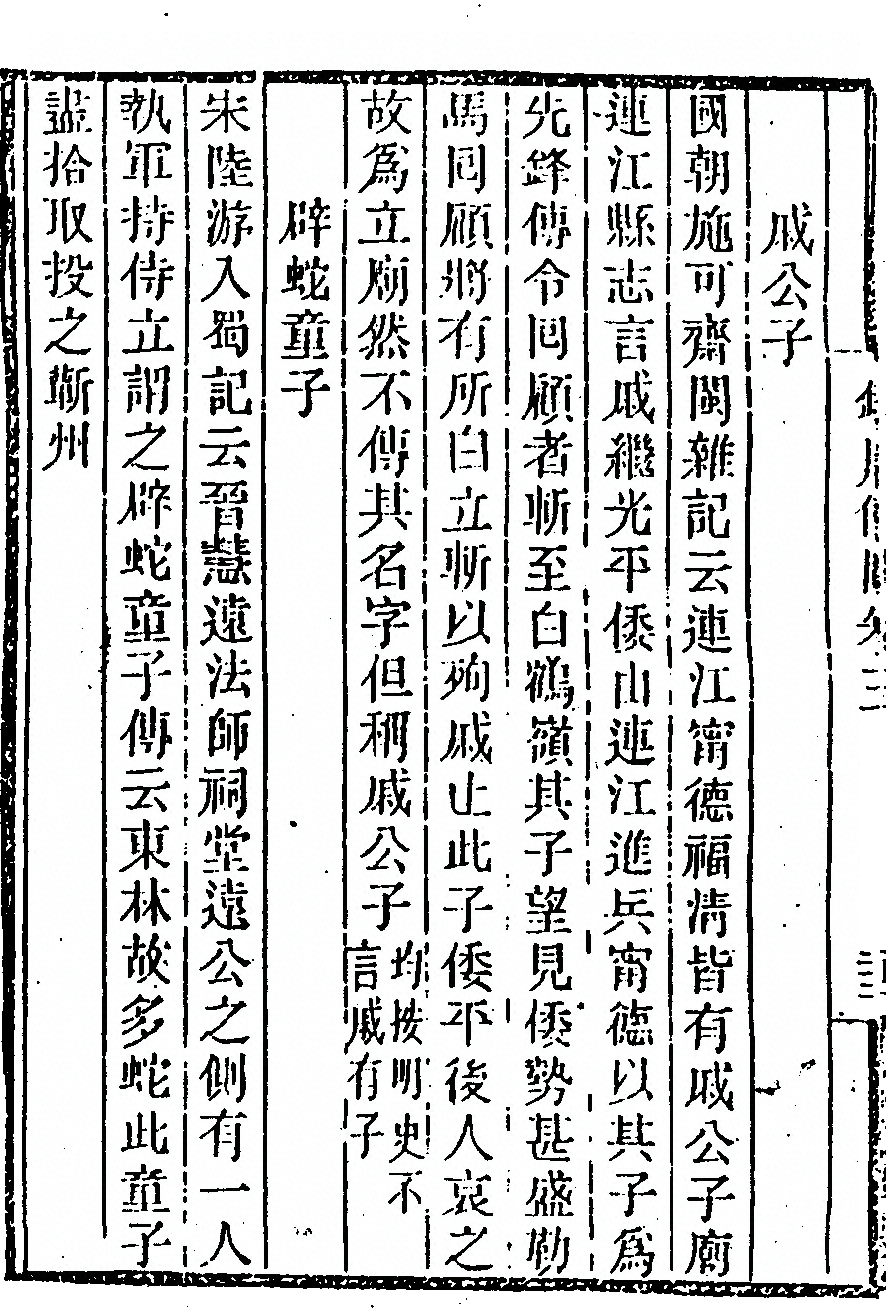 戚公子
國朝施可齋閩雜記云連江甯德福清皆有戚公子廟
連江縣志言戚繼光平倭由連江進兵甯德以其子為
先鋒傳令回顧者斬至白鶴嶺其子望見倭勢甚盛勒
馬回顧將有所白立斬以殉戚止此子倭平後人哀之
故為立廟然不傳其名字但稱戚公子均按明史不
言戚有子
辟蛇童子
宋陸游入蜀記云晉慧遠法師祠堂遠公之側有一人
執軍持侍立謂之辟蛇童子傳云東林故多蛇此童子
盡拾取投之蘄州